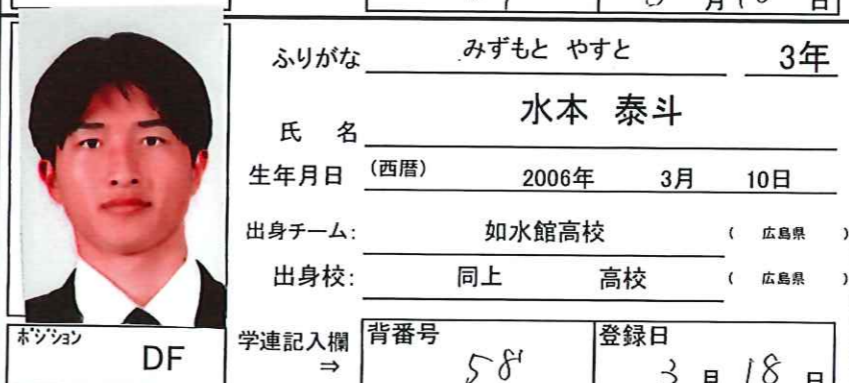 月 日
ふりがな みずもと やすと 3年
氏 名 水本 泰斗
生年月日 (西暦) 2006年 3月 10日
出身チーム: 如水館高校 ( 広島県 )
出身校: 同上 高校 ( 広島県 )
ポジション DF
学連記入欄 ⇒
背番号 58
登録日 3 月 18 日